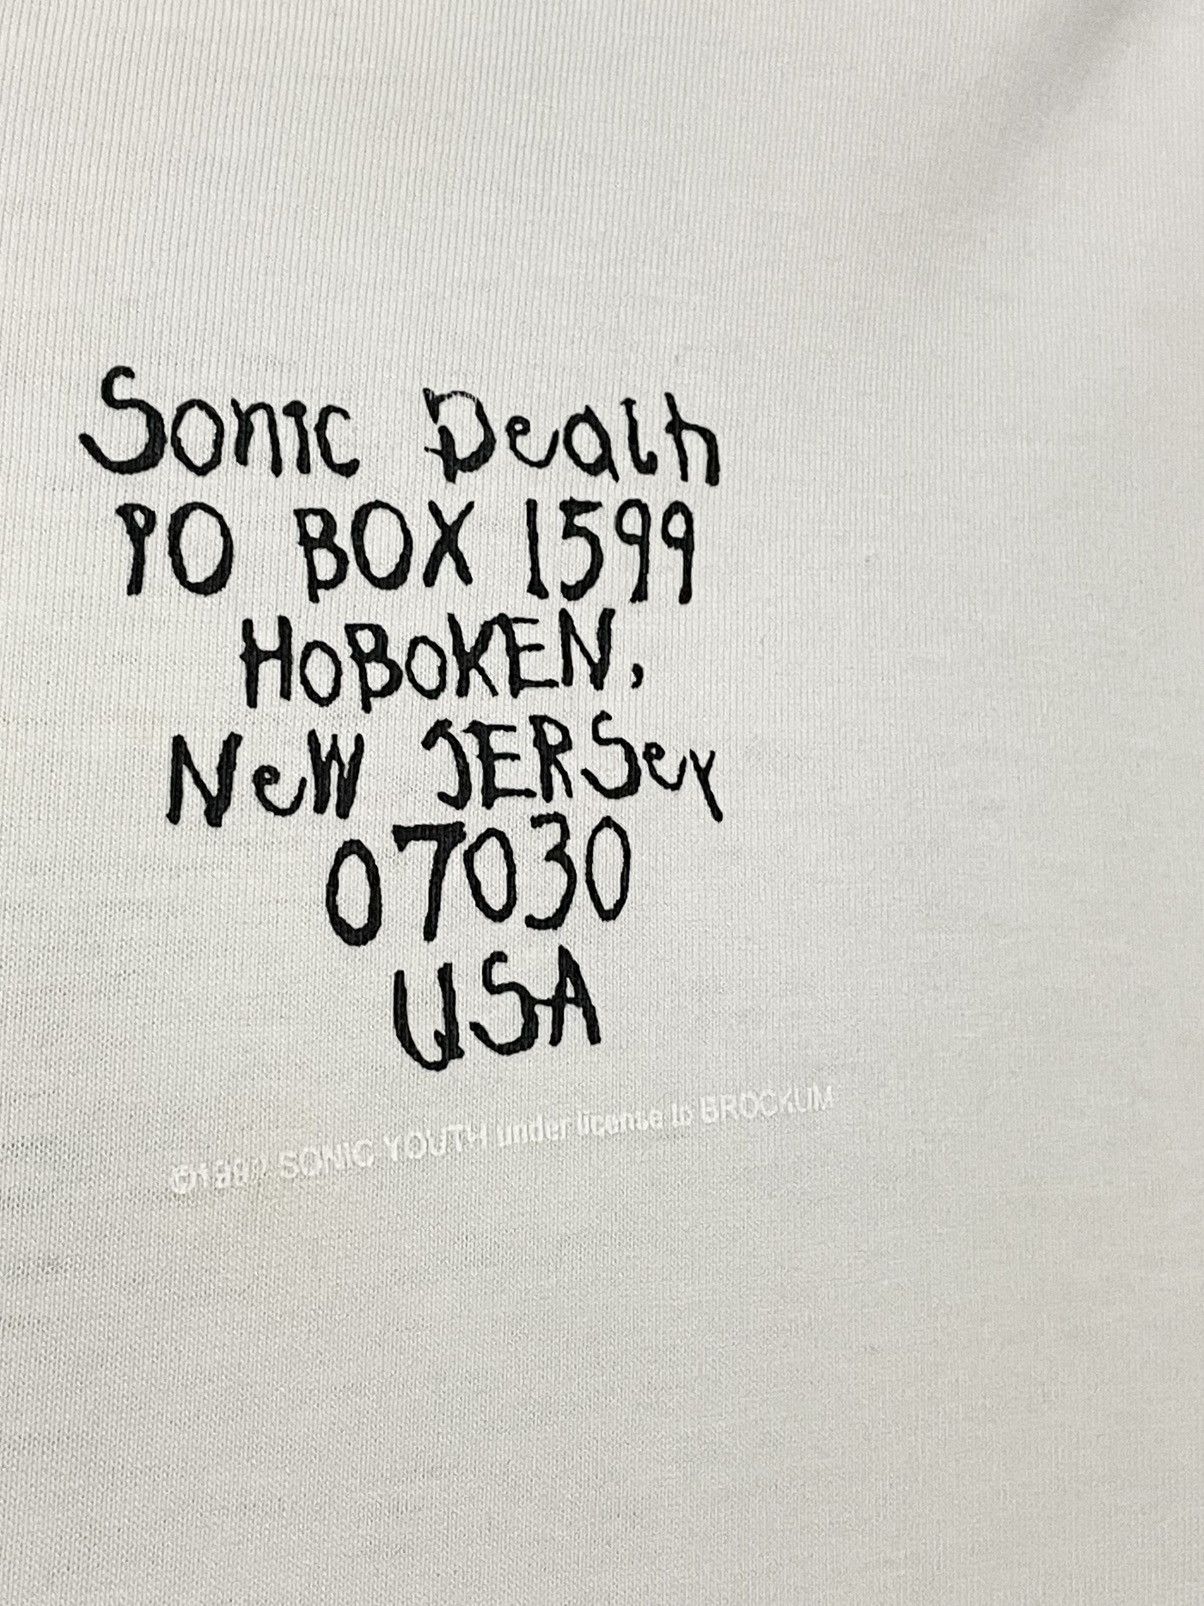 Sonic Death
PO BOX 1599
HOBOKEN,
NeW JERSey
07030
USA
SONIC YOUTH under license to BROCKUM